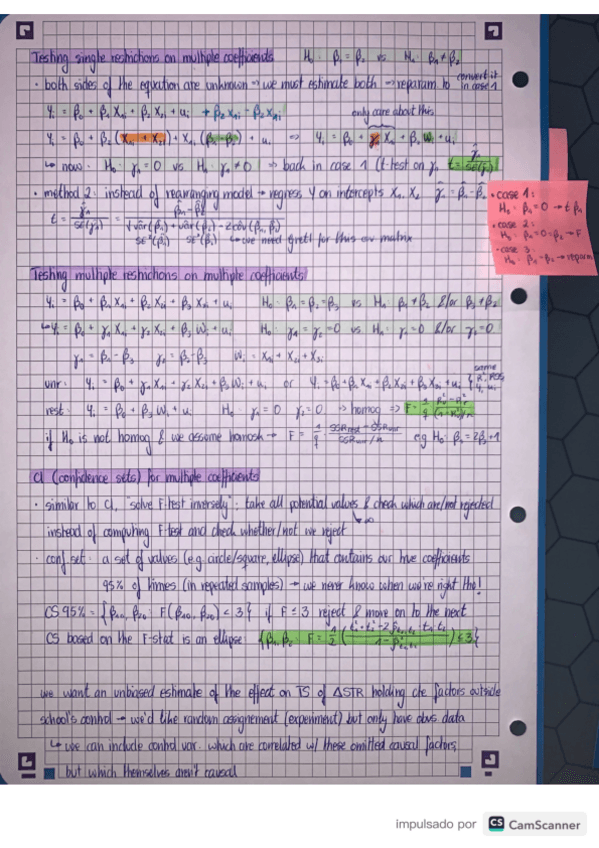 Testing single restrictions on multiple coefficients H₀: β₁ = β₂ vs H₁: β₁ ≠ β₂
· both sides of the equation are unknown → we must estimate both → reparam to convert it in case 1
Yᵢ = β₀ + β₁ X₁ᵢ + β₂ X₂ᵢ + uᵢ + β₂ X₁ᵢ - β₂ X₁ᵢ only care about this
Yᵢ = β₀ + β₂ (X₁ᵢ + X₂ᵢ) + X₁ᵢ (β₁ - β₂) + uᵢ ⇒ Yᵢ = β₀ + γ₁ X₁ᵢ + β₂ Wᵢ + uᵢ
↳ now: H₀: γ₁ = 0 vs H₁: γ₁ ≠ 0 ⇒ back in case 1 (t-test on γ₁ t = γ̂₁/SE(γ̂₁)
· method 2: instead of rearranging model → regress Y on intercepts X₁, X₂ γ̂₁ = β̂₁ - β̂₂
t = γ̂₁/SE(γ̂₁) = (β̂₁ - β̂₂)/√(vâr(β̂₁) + vâr(β̂₂) - 2côv(β̂₁, β̂₂))
SE²(β̂₁) SE²(β̂₂) ↳ we need Gretl for this cov matrix
· case 1:
H₀: β₁ = 0 → t β₁
· case 2:
H₀: β₁ = 0 = β₂ → F
· case 3:
H₀: β₁ = β₂ → reparam
Testing multiple restrictions on multiple coefficients
Yᵢ = β₀ + β₁ X₁ᵢ + β₂ X₂ᵢ + β₃ X₃ᵢ + uᵢ H₀: β₁ = β₂ = β₃ vs H₁ β₁ ≠ β₂ &/or β₃ ≠ β₂
↳ Yᵢ = β₀ + γ₁ X₁ᵢ + γ₂ X₂ᵢ + β₃ Wᵢ + uᵢ H₀: γ₁ = γ₂ = 0 vs H₁: γ₁ = 0 &/or γ₂ = 0
γ₁ = β₁ - β₃ γ₂ = β₂ - β₃ Wᵢ = X₁ᵢ + X₂ᵢ + X₃ᵢ
unr: Yᵢ = β₀ + γ₁ X₁ᵢ + γ₂ X₂ᵢ + β₃ Wᵢ + uᵢ or Yᵢ = β₀ + β₁ X₁ᵢ + β₂ X₂ᵢ + β₃ X₃ᵢ + uᵢ { same
rest: Yᵢ = β₀ + β₃ Wᵢ + uᵢ H₀: γ₁ = 0 γ₂ = 0 ⇒ homog ⇒ F =
if H₀ is not homog & we assume homosk → F = 1/q · (SSRrest - SSRunr)/(SSRunr/n) e.g H₀: β₁ = 2β₂ + 1
CI (confidence sets) for multiple coefficients
· similar to CI, "solve F-test inversely": take all potential values & check which are/not rejected
→ ∞
instead of computing F-test and check whether/not we reject
· conf set: a set of values (e.g. circle/square, ellipse) that contains our true coefficients
95% of times (in repeated samples) → we never know when we're right tho!
CS 95% = {β₁,₀, β₂,₀: F(β₁,₀, β₂,₀) < 3} if F ≤ 3 reject & move on to the next
CS based on the F-stat is an ellipse: {β₁, β₂: F = 1/2 (t₁² + t₂² - 2ρ̂t₁,t₂ · t₁ t₂)/(1 - ρ̂²t₁,t₂) ≤ 3}
we want an unbiased estimate of the effect on TS of ΔSTR holding che factors outside
school's control → we'd like random assignement (experiment) but only have obvs data
↳ we can include control var. which are correlated w/ these omitted causal factors,
but which themselves aren't causal
impulsado por CS CamScanner